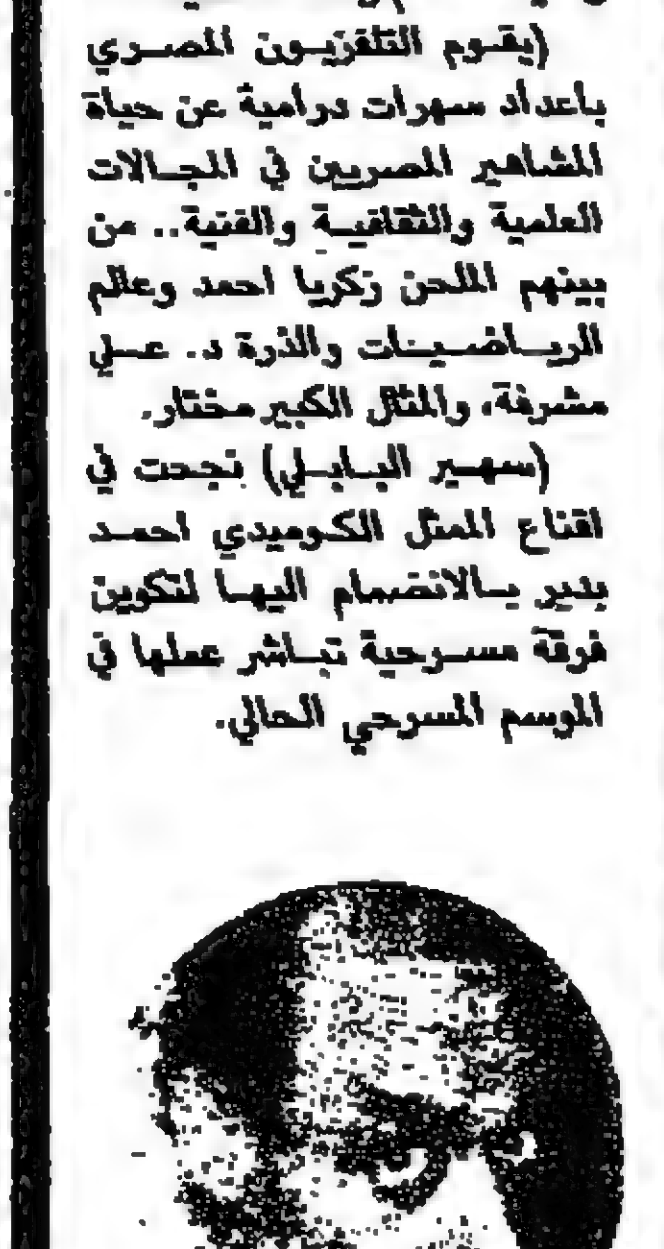 (يقوم التلفزيون المصري
باعداد سهرات درامية عن حياة
المشاهير المصريين في المجالات
العلمية والثقافية والفنية.. من
بينهم الملحن زكريا احمد وعالم
الرياضيات والذرة د. علي
مشرفة، والمثال الكبير مختار.
(سهير البابلي) نجحت في
اقناع الممثل الكوميدي احمد
بدير بالانضمام اليها لتكوين
فرقة مسرحية تباشر عملها في
الموسم المسرحي الحالي.